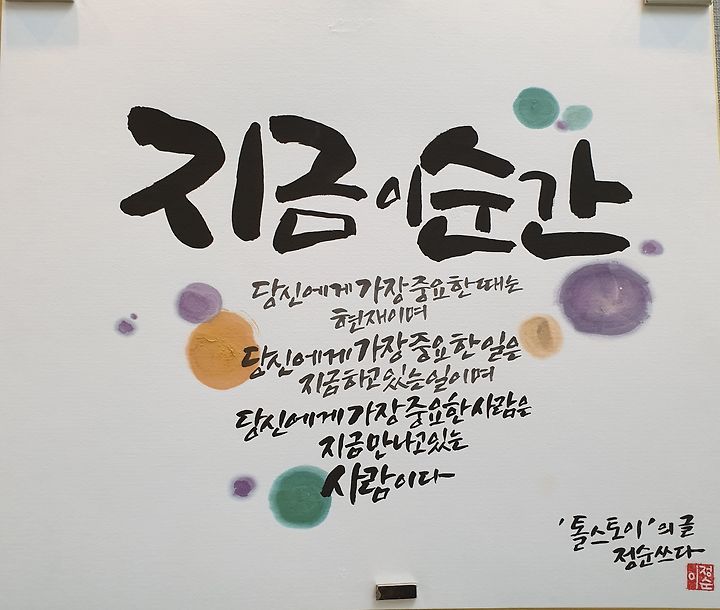 지금 이 순간
당신에게 가장 중요한 때는
현재이며
당신에게 가장 중요한 일은
지금하고 있는 일이며
당신에게 가장 중요한 사람은
지금 만나고 있는
사람이다
'톨스토이'의 글
정순쓰다
이정순